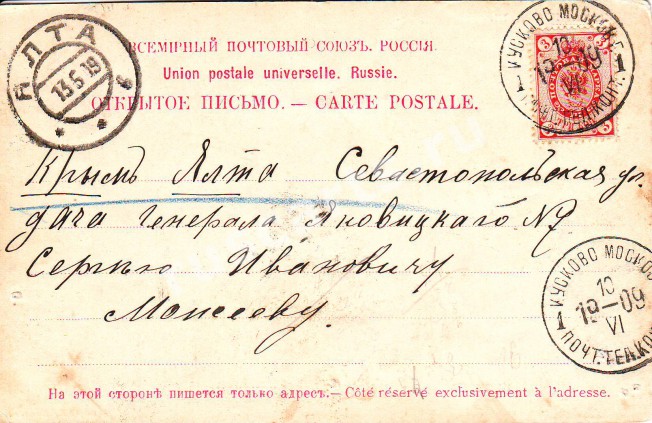 ЯЛТА
13.6.19
ВСЕМІРНЫЙ ПОЧТОВЫЙ СОЮЗЪ. РОССІЯ.
Union postale universelle. Russie.
ОТКРЫТОЕ ПИСЬМО. — CARTE POSTALE.
КУСКОВО МОСК. Г.
10
19—09
VI
1
3
3
Крымъ Ялта Севастопольская ул.
дача Генерала Яновицкаго №
Сергѣю Ивановичу
Моисееву.
КУСКОВО МОСКО
10
19—09
VI
1
ПОЧТ.ТЕЛ.КОН
На этой сторонѣ пишется только адресъ. — Côté réservé exclusivement à l'adresse.